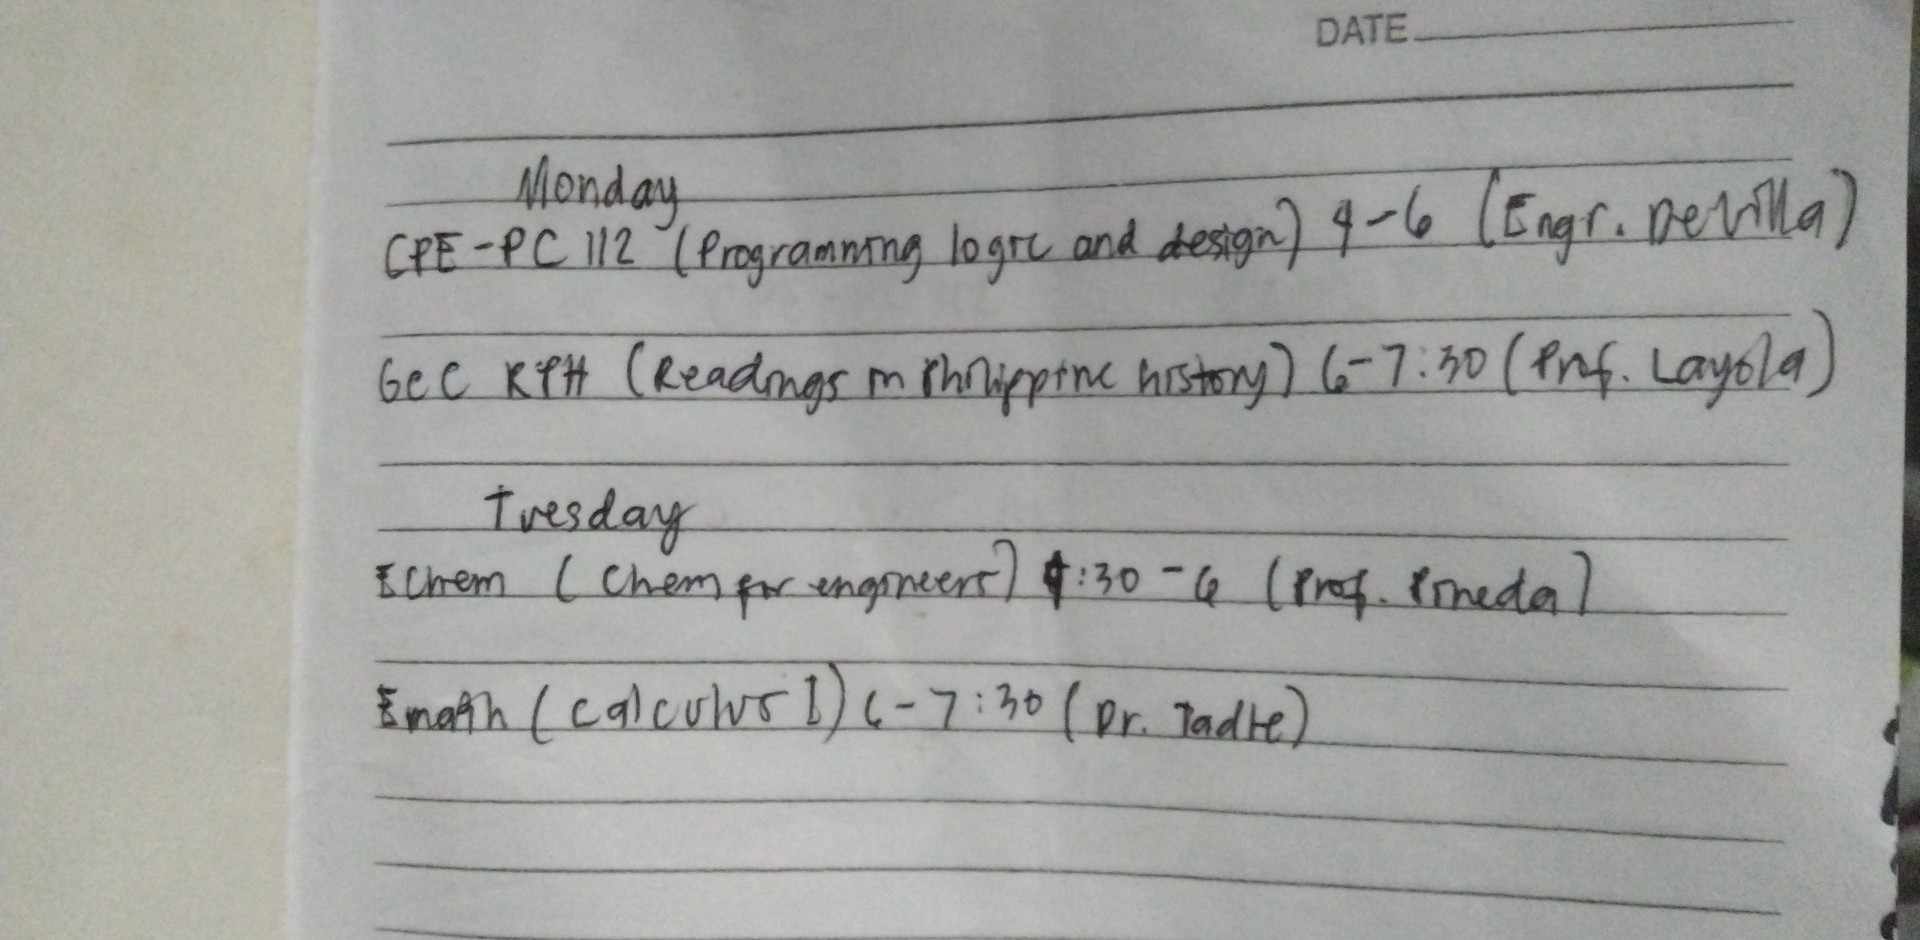 DATE
Monday
CPE-PC 112 (Programming logic and design) 4-6 (Engr. De Villa)
GEC RPH (Readings in Philippine history) 6-7:30 (Prof. Layola)
Tuesday
EChem (Chem for engineers) 4:30-6 (Prof. Pineda)
Emath (Calculus I) 6-7:30 (Dr. Tadle)